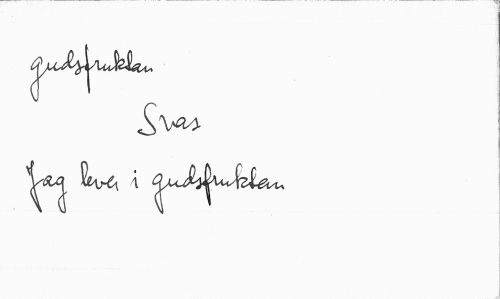 gudsfruktan
Svas
Jag lever i gudsfruktan